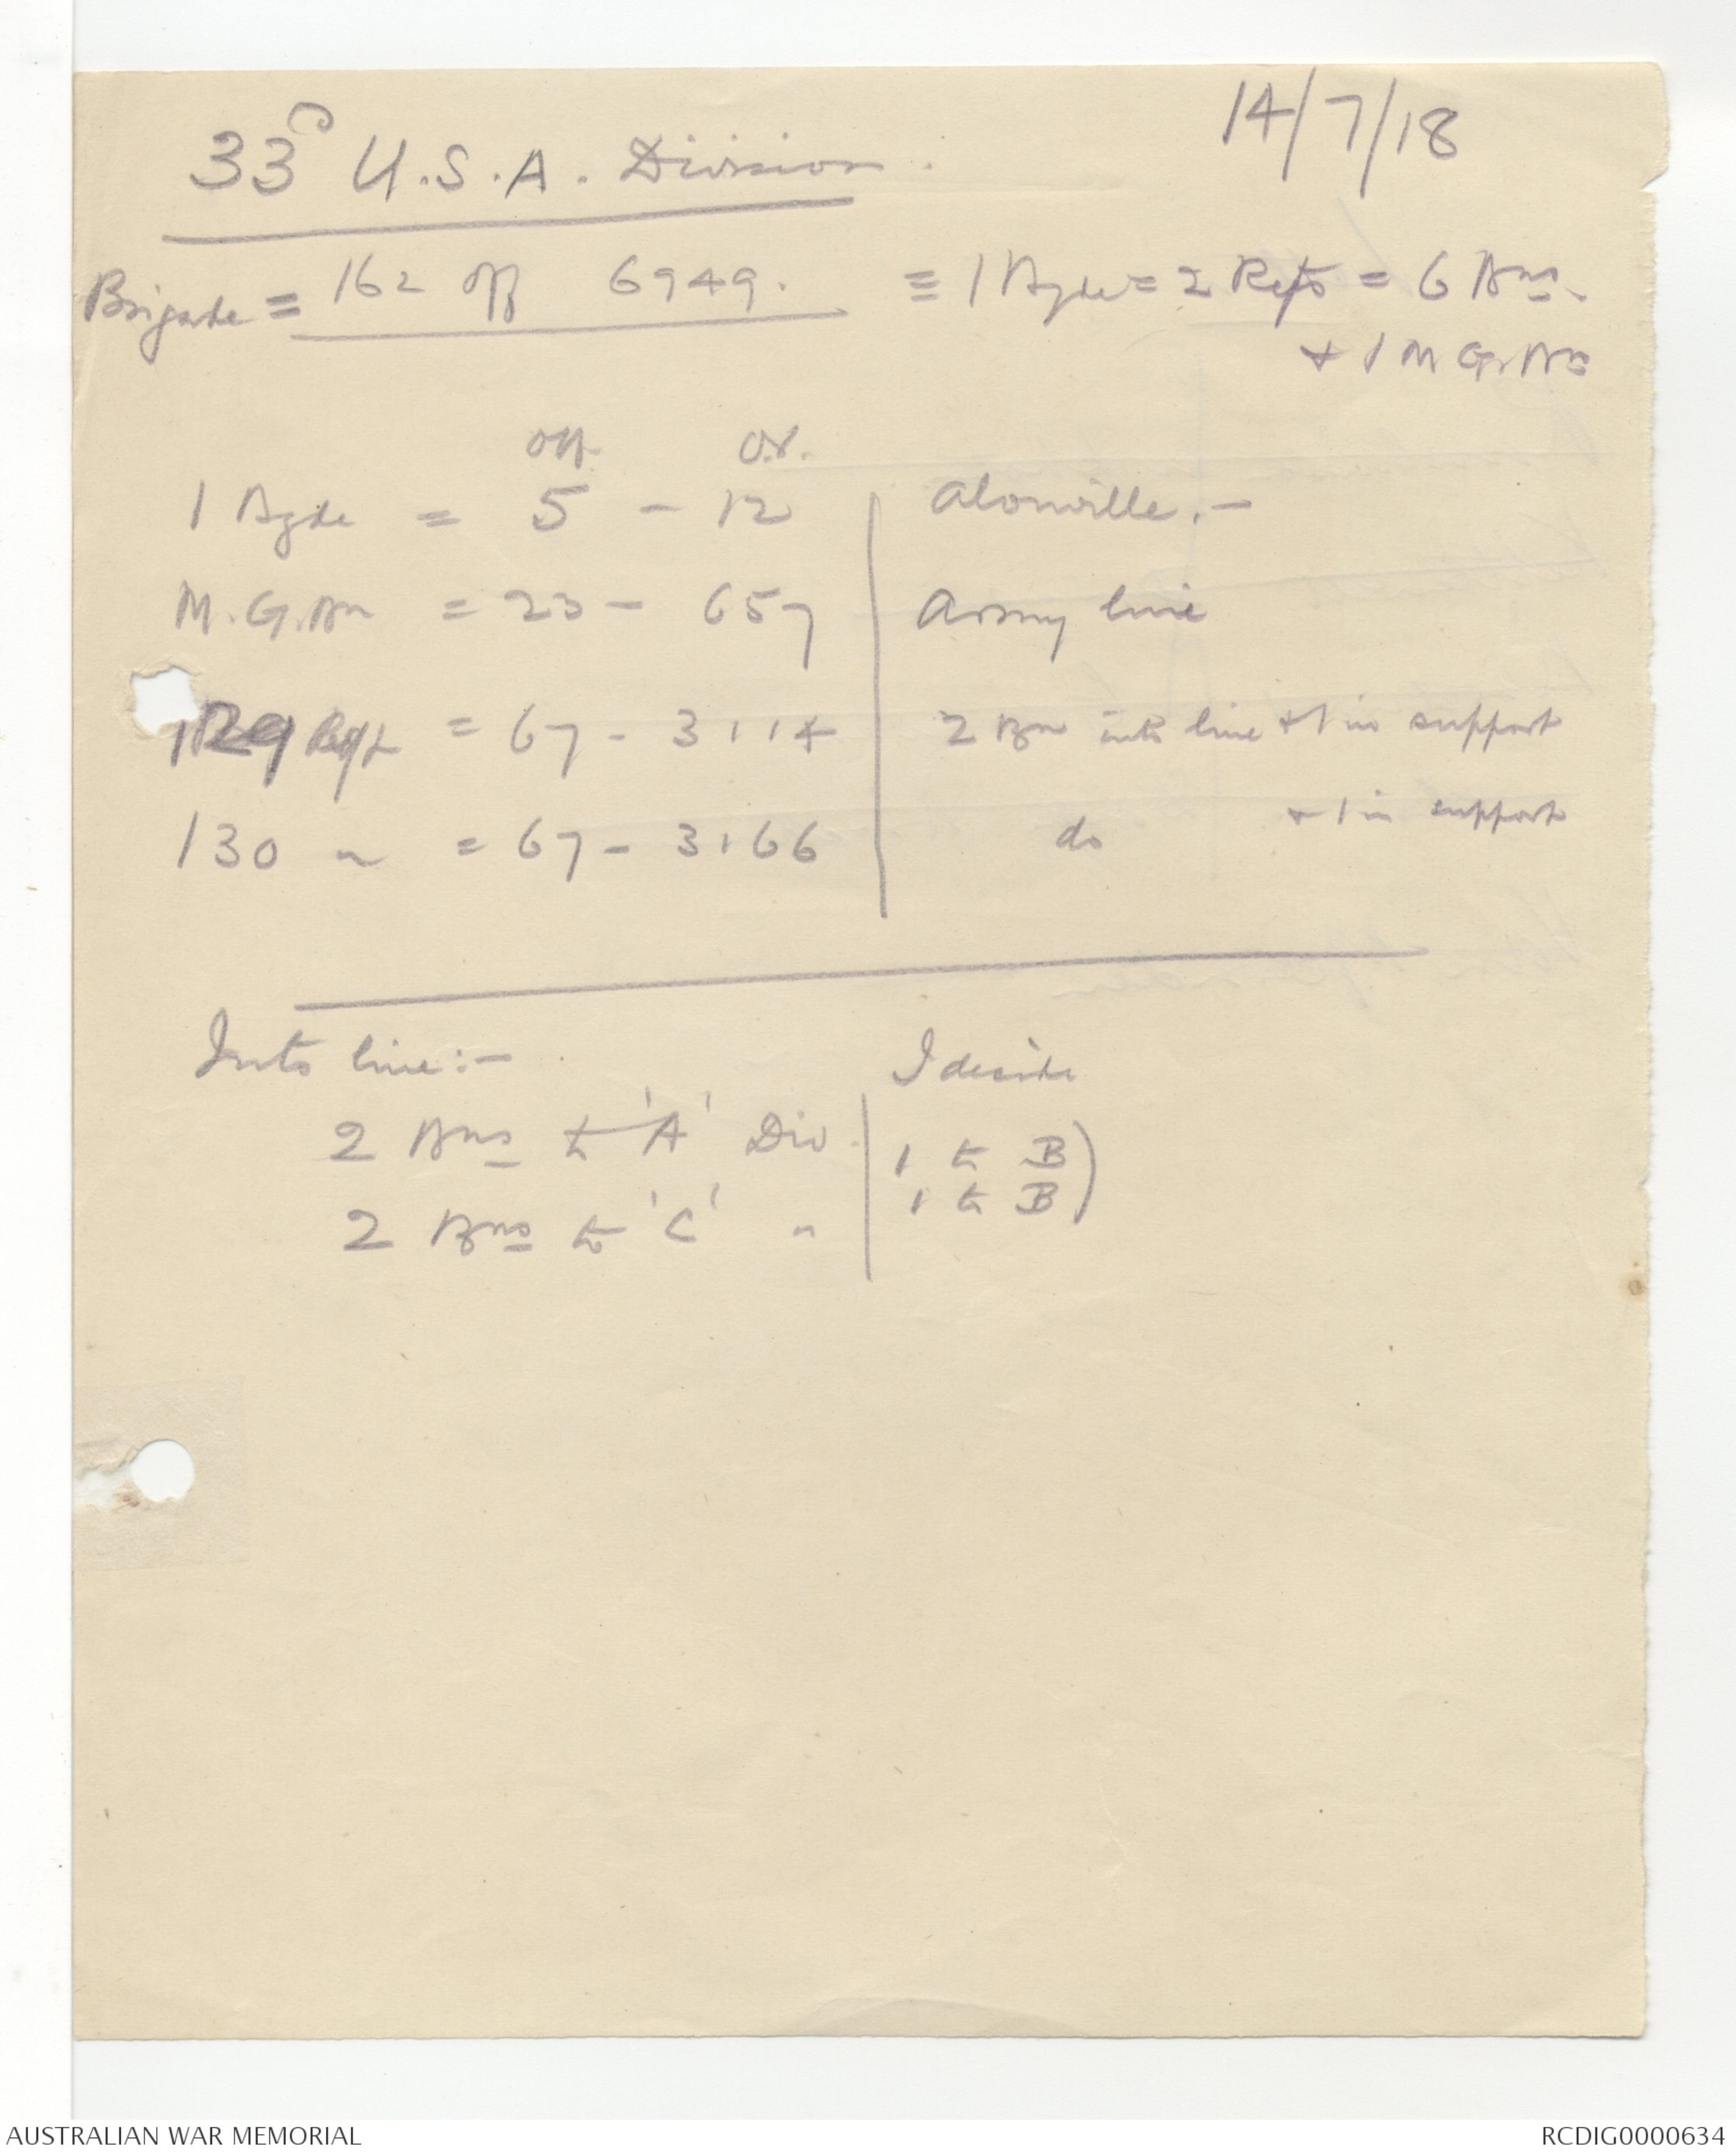 14/7/18
33D U.S.A. Division.
Brigade = 162 off 6949. ≡ 1 Bgde = 2 Regts = 6 Bns.
+ 1 M G. Bn
Off. O.R.
1 Bgde = 5 - 12 Alonville. -
M.G. Bn = 23 - 657 Army line
129 Regt = 67 - 3114 2 Bn into line + 1 in support
130 " = 67 - 3166 do + 1 in support
Into line:- I desire
2 Bns to 'A' Div. 1 to B)
1 to B)
2 Bns to 'C' "
AUSTRALIAN WAR MEMORIAL RCDIG0000634